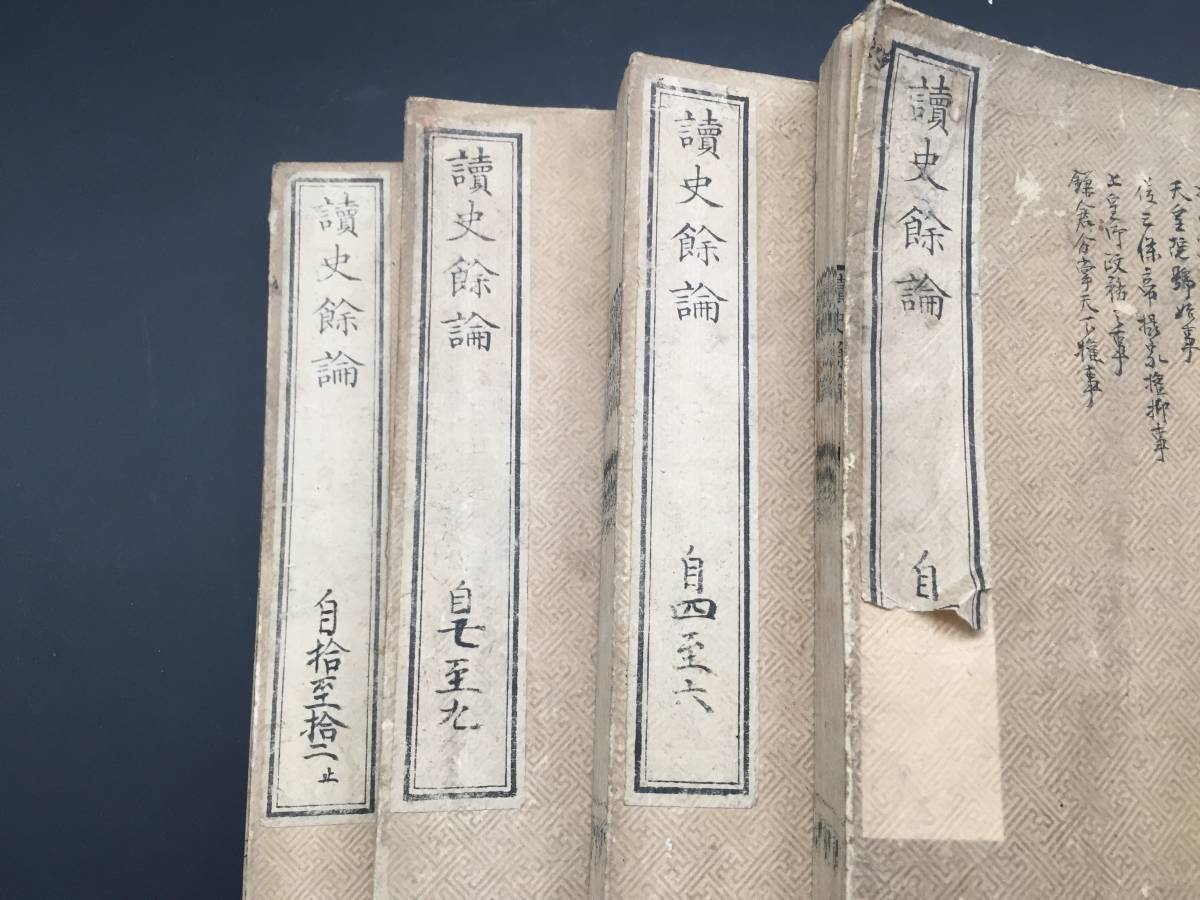 天皇院號始事
後三條帝摂家権抑事
上皇御政務之事
鎌倉分掌天下権事
讀史餘論
自
讀史餘論
自四至六
讀史餘論
自七至九
讀史餘論
自拾至拾二止